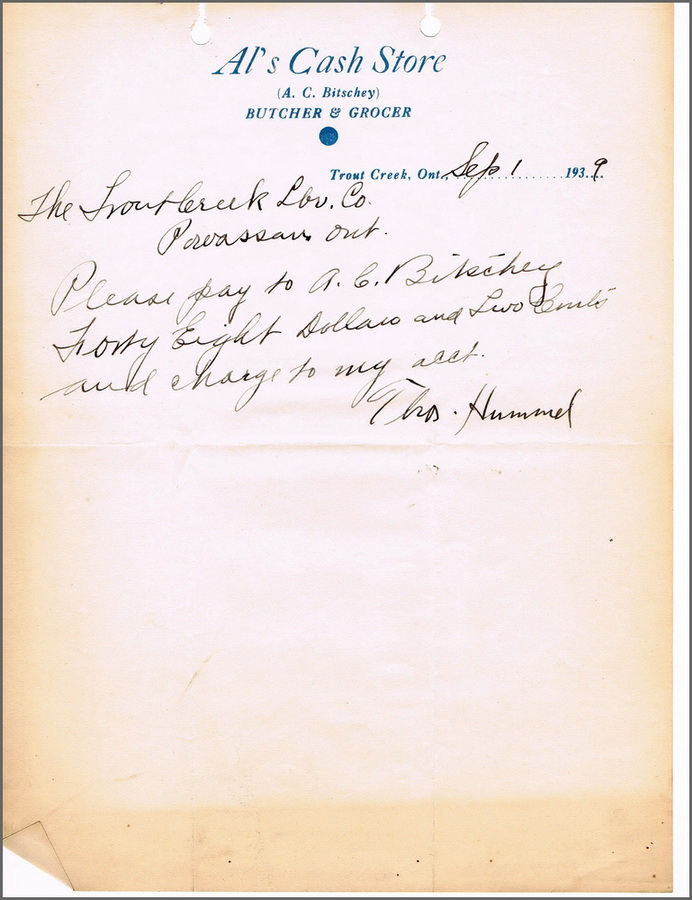 Al's Cash Store
(A. C. Bitschey)
BUTCHER & GROCER
Trout Creek, Ont., Sep 1 1939
The Trout Creek Lbr. Co.
Powassan Ont.
Please pay to A. C. Bitschey
Forty Eight Dollars and Two Cents
and charge to my acct.
Thos. Hummel